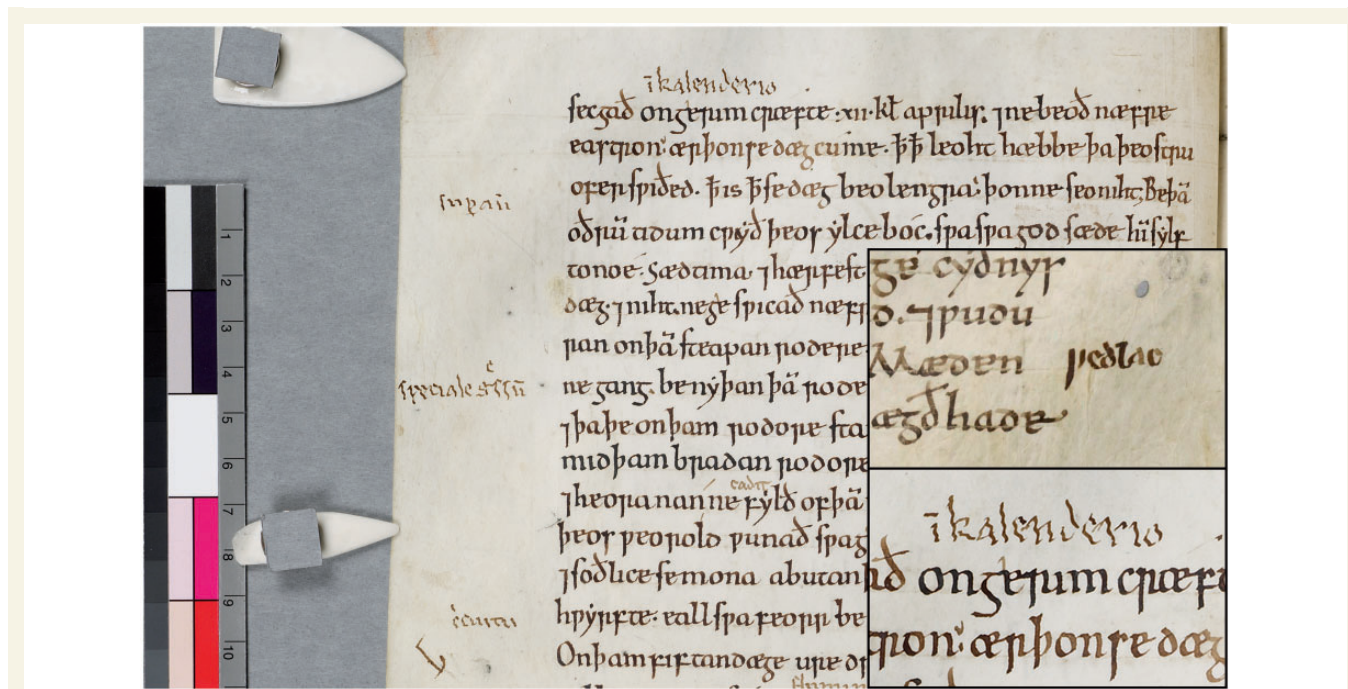 ī kalenderio
secgað on gerim cræfte .xii. kł aprilis. ⁊ ne beoð næfre
eastron. ær þon se dæg cume. ꝥ ꝥ leoht hæbbe þa þeostru
ofer sƿiðed. ꝥ is ꝥ se dæg beo lengra. þonne seo niht; Be þā
supan
oðrū tidum cƿyð þeos ylce boc. sƿa sƿa god sæde hī sylf
to noe. Sædtima ⁊ hærfest
dæg. ⁊ niht. ne gesƿicað næfr
ran on þā steapan rodere
speciale
ne gang. benyþan þā rode
⁊ þa þe on þam rodore sta
mid þam bradan rodore
cadit
⁊ heora nan ne fylð of þā
þeos ƿeorold ƿunað sƿa g
⁊ soðlice se mona abutan
hƿyrfte. eall sƿa feorr be
On þam fiftan dæge ure dr
1
2
3
4
5
6
7
8
9
10
ge cyðnys
d. ⁊ ƿudu
Mæden ƿedlac
ægðhade
ī kalenderio
að on gerim cræft
tron. ær þon se dæg